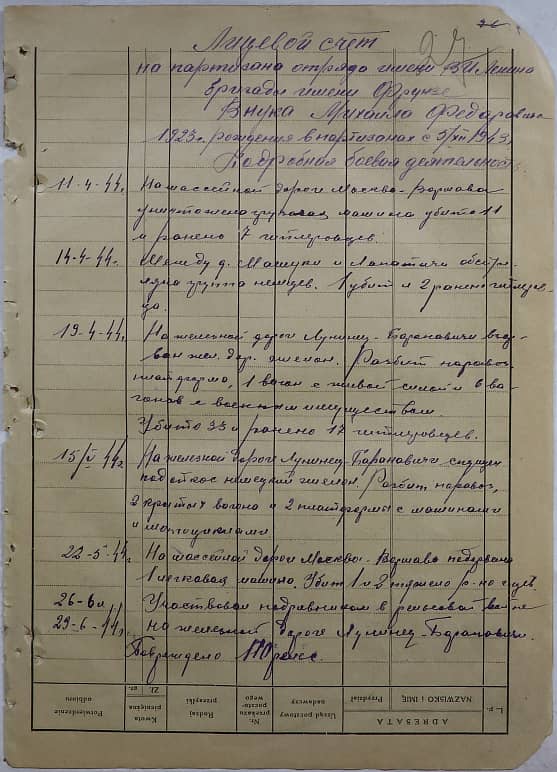 Лицевой счет
на партизана отряда имени В.И. Ленина
бригады имени Фрунзе
Внука Михаила Федаравича
1923г. рождения в партизанах с 5/XII 1943г.
Подробная боевая деятельность
11-4-44г. На шассейной дороге Москва-Варшава
уничтожена грузовая машина убито 11
и ранено 7 гитлеровцев.
14-4-44г. Между д. Машуки и Лапатичи обстре-
ляна группа немцев. 1 убит и 2 ранено гитлеров-
ца.
19-4-44г. На железной дороге Лунинец-Барановичи взор-
ван жел. дор. эшелон. Разбит паровоз
платформа, 1 вагон с живой силой и 6 ва-
гонов с военным имуществом.
Убито 33 и ранено 17 гитлеровцев.
15/V 44г. На железной дороге Лунинец-Барановичи спущен
под откос немецкий эшелон. Разбит паровоз,
2 крытых вагона и 2 платформы с машинами
и мотоциклами
22-5-44г. На шассейной дороге Москва-Варшава подорвана
1 легковая машина. Убит 1 и 2 тяжело
26-6 и Участвовал подрывником в рельсовой войне
29-6-44г. на железной дороге Лунинец-Барановичи.
Повреждено рельс.
L. p.
NAZWISKO I IMIĘ
Przydział
ADRESATA
Urząd pocztowy
nadawczy
Nr.
przekazu
poczto-
wego
Rodzaj
przesyłki
Kwota
pieniężna
Zł.
gr.
Potwierdzenie
odbioru